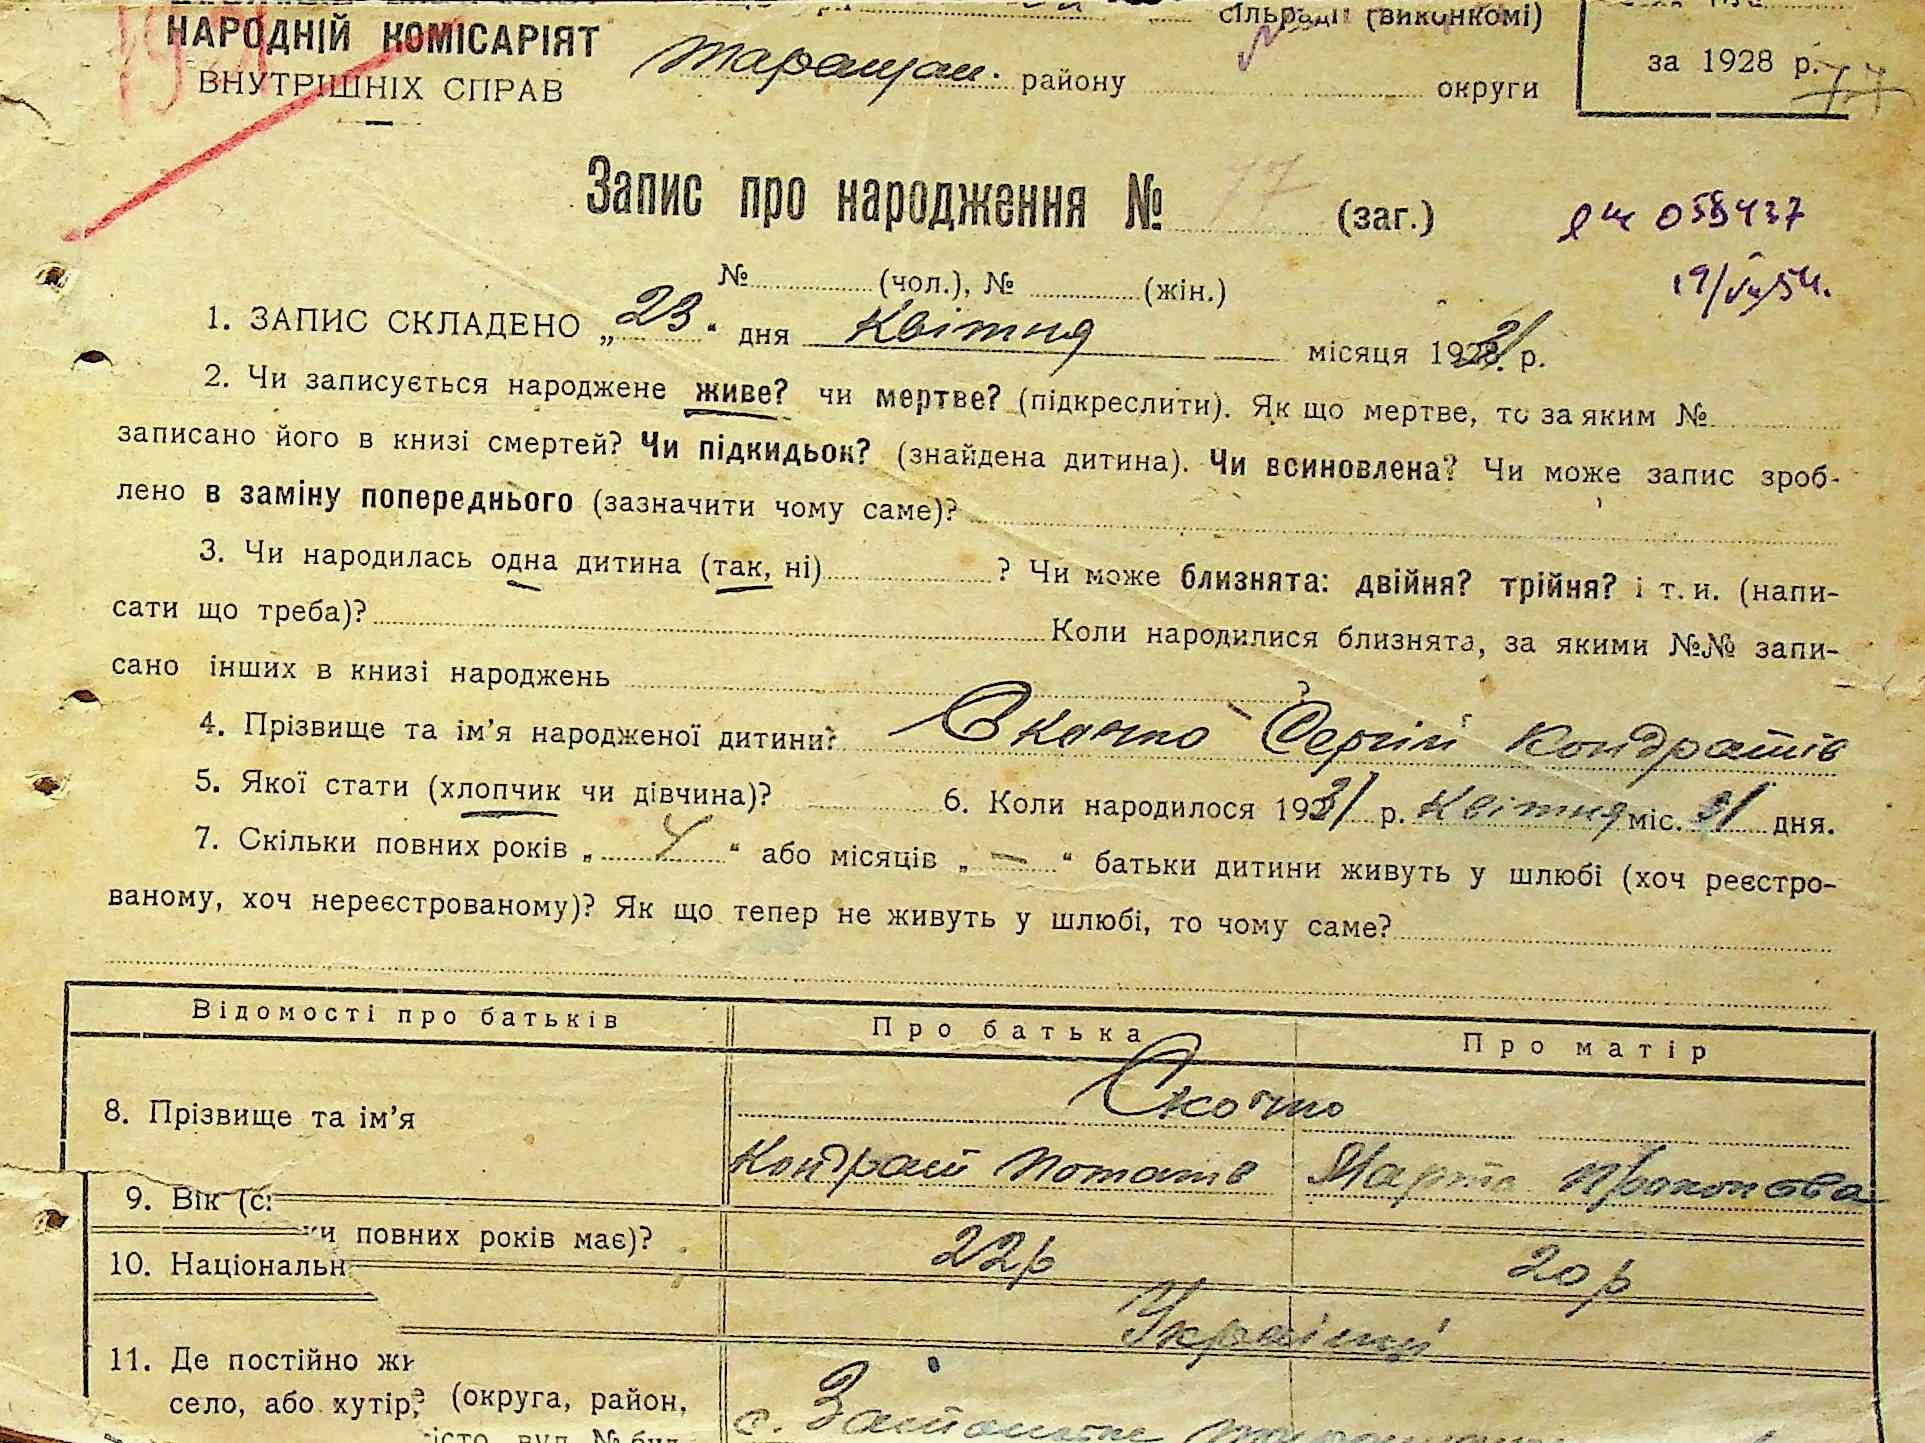 НАРОДНІЙ КОМІСАРІЯТ
ВНУТРІШНІХ СПРАВ
сільради (виконкомі)
Таращан. району округи
за 1928 р.
77
Запис про народження № 77 (заг.)
059437
19/ 54.
№ (чол.), № (жін.)
1. ЗАПИС СКЛАДЕНО „23“ дня Квітня місяця 1931 р.
2. Чи записується народжене живе? чи мертве? (підкреслити). Як що мертве, то за яким №
записано його в книзі смертей? Чи підкидьок? (знайдена дитина). Чи всиновлена? Чи може запис зроб-
лено в заміну попереднього (зазначити чому саме)?
3. Чи народилась одна дитина (так, ні) ? Чи може близнята: двійня? трійня? і т. и. (напи-
сати що треба)? Коли народилися близнята, за якими №№ запи-
сано інших в книзі народжень ?
4. Прізвище та ім’я народженої дитини? Скочко Сергій Кондратів
5. Якої стати (хлопчик чи дівчина)? 6. Коли народилося 1931 р. Квітня міс. 21 дня.
7. Скільки повних років „ “ або місяців „ — “ батьки дитини живуть у шлюбі (хоч реєстро-
ваному, хоч нереєстрованому)? Як що тепер не живуть у шлюбі, то чому саме?
Відомості про батьків Про батька Про матір
8. Прізвище та ім’я Скочко
Кондрат Потапів Марта Прокопова
9. Вік (с:
ки повних років має)? 22р 20р
10. Національн
Українці
11. Де постійно жи
село, або хутір, (округа, район,
с.